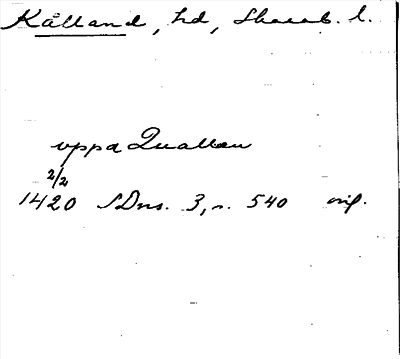 Kålland, hd, Skarab. l.
uppa Quallan
2/2
1420 SDns. 3, s. 540 orig.